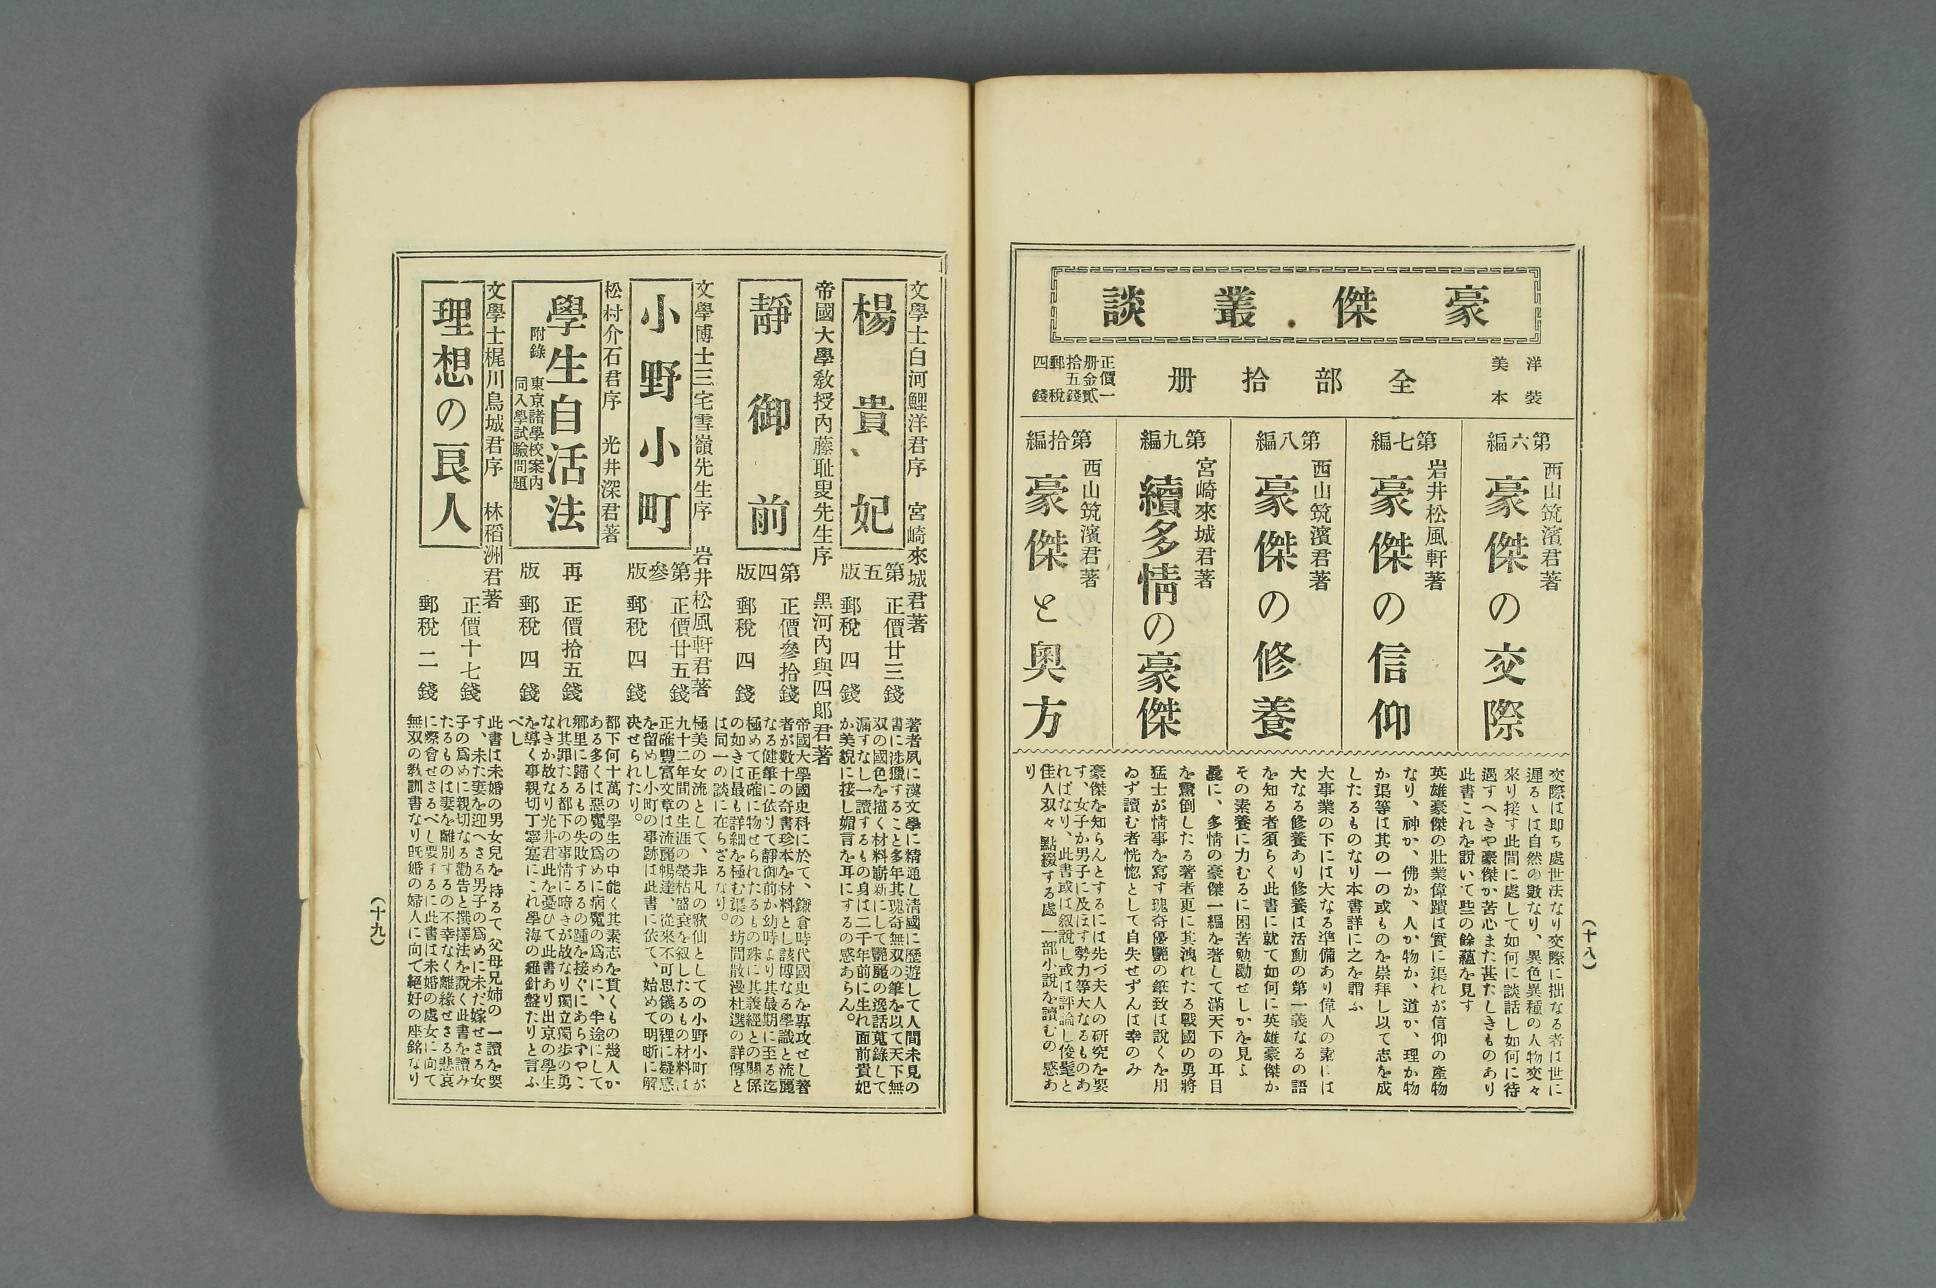 豪傑叢談
洋裝
美本
全部拾册
正價一
册金貳
拾五錢
郵税
四錢
第六編
西山筑濱君著
豪傑の交際
交際は即ち處世法なり交際に拙なる者は世に
遲るゝは自然の數なり、異色異種の人物交々
來り接す此間に處して如何に談話し如何に待
遇すへきや豪傑か苦心また甚たしきものあり
此書これを説いて些の餘蘊を見す
第七編
岩井松風軒著
豪傑の信仰
英雄豪傑の壯業偉蹟は實に渠れが信仰の產物
なり、神か、佛か、人か物か、道か、理か物
か渠等は其の一の或ものを崇拜し以て志を成
したるものなり本書詳に之を謂ふ
第八編
西山筑濱君著
豪傑の修養
大事業の下には大なる準備あり偉人の素には
大なる修養あり修養は活動の第一義なるの語
を知る者須らく此書に就て如何に英雄豪傑か
その素養に力むるに困苦勉勵せしかを見よ
第九編
宮崎來城君著
續多情の豪傑
曩に、多情の豪傑一編を著して滿天下の耳目
を驚倒したる著者更に其洩れたる戰國の勇將
猛士が情事を寫す瑰奇優艷の筆致は說くを用
ゐず讀む者恍惚として自失せずんは幸のみ
第拾編
西山筑濱君著
豪傑と奥方
豪傑を知らんとするには先づ夫人の研究を要
す、女子か男子に及ほす勢力等大なるものあ
ればなり、此書或は叙說し或は評論し俊髦と
佳人双々點綴する處一部小說を讀むの感あ
り
(十八)
文學士白河鯉洋君序 宮崎來城君著
楊貴妃
第五版
正價廿三錢
郵税四錢
著者夙に漢文學に精通し清國に歷遊して人間未見の
書に涉獵すること多年其瑰奇無双の筆を以て天下無
双の國色を描く材料嶄新にして艷麗の逸話蒐錄して
漏すなし一讀するもの身は二千年前に生れ面前貴妃
か美貌に接し媚言を耳にするの感あらん。
帝國大學敎授內藤耻叟先生序 黑河內與四郎君著
靜御前
第四版
正價參拾錢
郵税四錢
帝國大學國史科に於て、鎌倉時代國史を專攻せし著
者が數十の奇書珍本を材料とし該博なる學識と流麗
なる健筆に依りて靜御前か幼時より其最期に至る迄
極めて正確に物せられたるもの殊に其義經との關係
の如きは最も詳細を極む渠の坊間散漫杜選の詳傳と
は同一の談に在らざるなり。
文學博士三宅雪嶺先生序 岩井松風軒君著
小野小町
第參版
正價廿五錢
郵税四錢
極美の女流として、非凡の歌仙としての小野小町が
九十二年間の生涯の榮枯盛衰を叙したるもの材料は
正確豐富文章は流麗暢達、從來不可思議の裡に疑惑
を留めし小町の事跡は此書に依て、始めて明晰に解
决せられたり。
松村介石君序 光井深君著
學生自活法
附錄 東京諸學校案內
同入學試驗問題
再版
正價拾五錢
郵税四錢
都下何十萬の學生の中能く其素志を貫くもの幾人か
ある多くは惡魔の爲めに病魔の爲めに、半途にして
郷里に歸るもの失敗するもの踵を接ぐにあらずやこ
れ其罪たる都下の事情に暗きが故なり獨立獨歩の勇
なきか故なり光井君此を憂ひて此書あり出京の學生
を導く事親切丁寧寔にこれ學海の羅針盤たりと言ふ
べし
文學士梶川鳥城君序 林稻洲君著
理想の良人
正價十七錢
郵税二錢
此書は未婚の男女兒を持るて父母兄姉の一讀を要
す、未た妻を迎へさる男子の爲めに未だ嫁せさる女
子の爲めに親切なる勸告と撰擇法を說く此書を讀み
たるものは妻を離別するの不幸なく離緣せさる悲哀
に際會せさるべし要するに此書は未婚の處女に向て
無双の敎訓書なり旣婚の婦人に向て絕好の座銘なり
(十九)